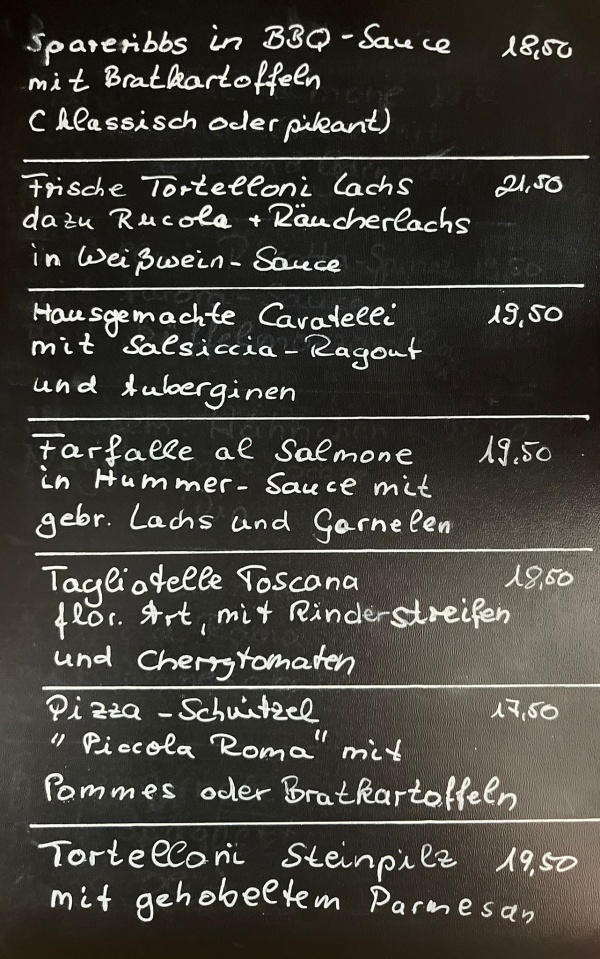 Spareribbs in BBQ-Sauce 18,50
mit Bratkartoffeln
(klassisch oder pikant)
Frische Tortelloni Lachs 21,50
dazu Rucola + Räucherlachs
in Weißwein-Sauce
Hausgemachte Cavatelli 19,50
mit Salsiccia-Ragout
und Auberginen
Farfalle al Salmone 19.50
in Hummer-Sauce mit
gebr. Lachs und Garnelen
Tagliatelle Toscana 18,50
flor. Art, mit Rinderstreifen
und Cherrytomaten
Pizza-Schnitzel 17,50
"Piccola Roma" mit
Pommes oder Bratkartoffeln
Tortelloni Steinpilz 19,50
mit gehobeltem Parmesan